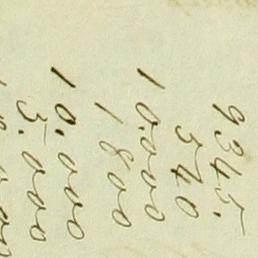 9345.
540
10.000
1800
10.000
5.000